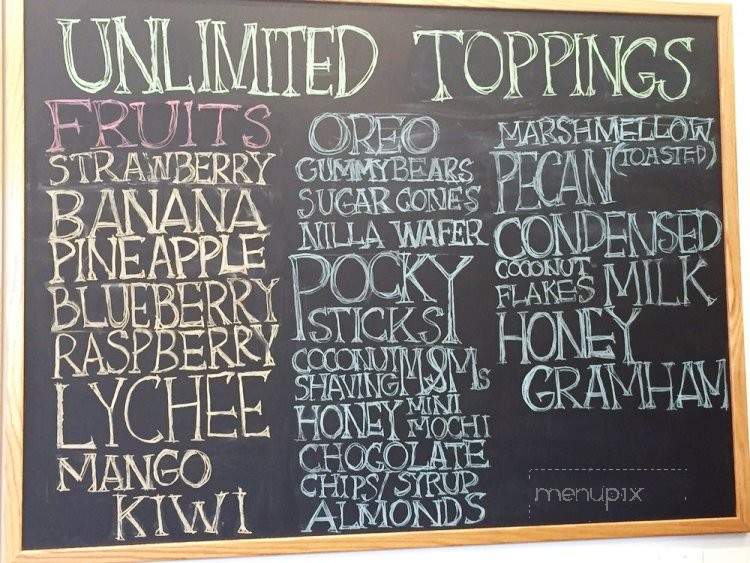 UNLIMITED TOPPINGS
FRUITS
STRAWBERRY
BANANA
PINEAPPLE
BLUEBERRY
RASPBERRY
LYCHEE
MANGO
KIWI
OREO
GUMMYBEARS
SUGAR CONES
NILLA WAFER
POCKY
STICKS
COCONUT SHAVING
M&Ms
HONEY
MINI MOCHI
CHOCOLATE
CHIPS/SYRUP
ALMONDS
MARSHMELLOW
(TOASTED)
PECAN
CONDENSED
MILK
COCONUT
FLAKES
HONEY
GRAMHAM
menupix